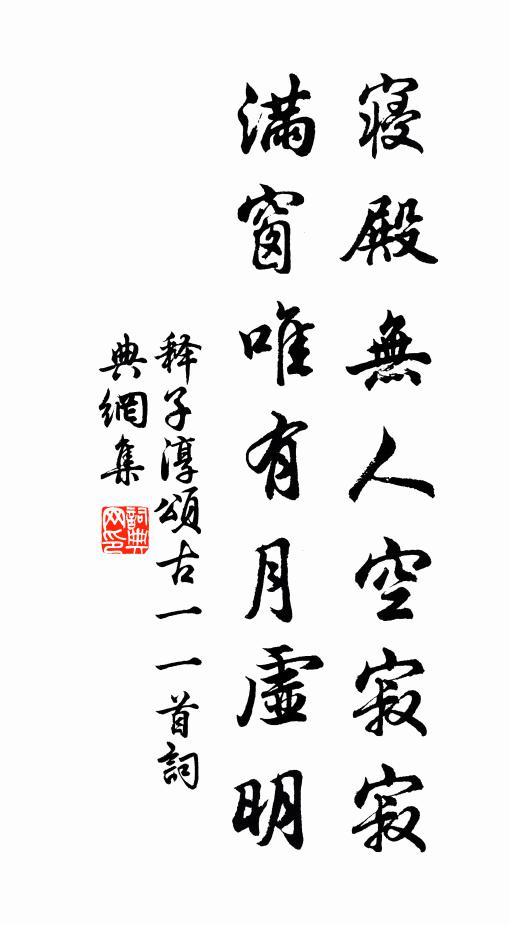 寝殿無人空寂寂
滿窗唯有月虛明
释子淳頌古一一首詞
典網集
詞典
网印